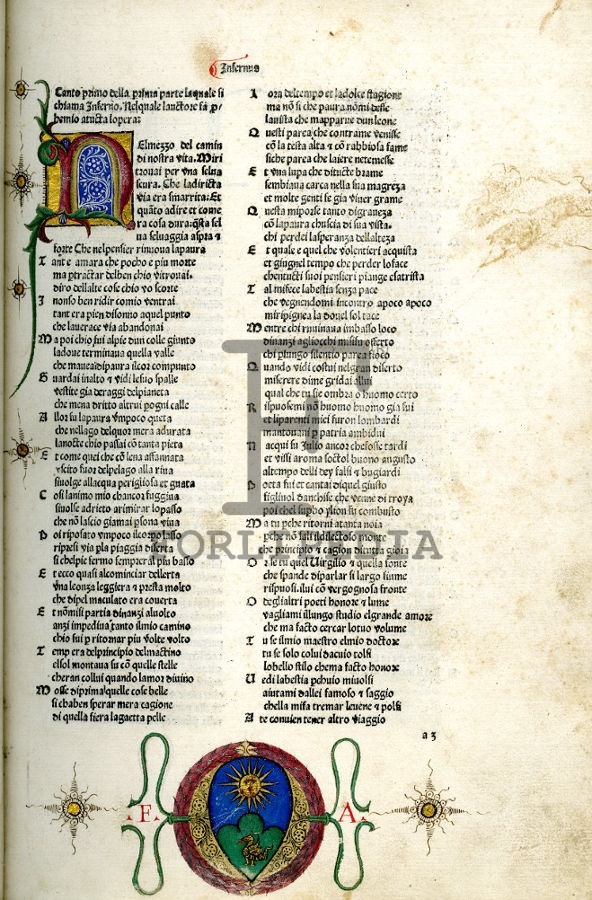 Infernus
Canto primo della prima parte laquale si
chiama Inferno. Nelquale lauctore fa p
hemio atucta lopera:
NElmezzo del camin
di nostra vita. Miri
trouai per vna selua
scura. Che ladiricta
via era smarrita: Et
quãto adire et come
ra cosa dura: q̃sta sel
ua seluaggia aspra &
forte Che nelpensier rinuoua lapaura
Tant e amara che pocho e piu morte
ma ptractar delben chio vitrouai
diro dellaltre cose chio vo scorte
I nonso ben ridir comio ventrai
tant era pien disonno aquel punto
che lauerace via abandonai
Ma poi chio fui alpie dun colle giunto
ladoue terminaua quella valle
che mauea dipaura ilcor compunto
Guardai inalto & vidi lesue spalle
vestite gia deraggi delpianeta
che mena dritto altrui pogni calle
Allor fu lapaura vmpoco queta
che nellago delquor mera adurata
lanotte chio passai cõ tanta pieta
Et come quei che cõ lena affannata
vscito fuor delpelago alla riua
siuolge allacqua perigliosa et guata
Cosi lanimo mio chancor fuggiua
siuolse adrieto arimirar lopasso
che nõ lascio giamai psona viua
Poi riposato vmpoco ilcorpo lasso
ripresi via pla piaggia diserta
si chelpie fermo sempreral piu basso
Et ecco quasi alcominciar dellerta
vna leonza leggiera & presta molto
che dipel maculato era couerta
Et nõmisi partia dinanzi aluolto
anzi impediua tanto ilmio camino
chio fui p ritornar piu volte volto
Temp era delprincipio delmactino
elsol montaua su cõ quelle stelle
cheran collui quando lamor diuino
Mosse diprima quelle cose belle
si chaben sperar mera cagione
di quella fiera lagaetta pelle
Lora deltempo et ladolce stagione
ma nõ si che paura nõmi desse
lauista che mapparue dun leone
Questi parea che contrame venisse
cõ la testa alta & cõ rabbiosa fame
siche parea che laiere netemesse
Et vna lupa che ditucte brame
sembiaua carca nella sua magreza
et molte genti fe gia viuer grame
Questa miporse tanto digraueza
cõ lapaura chuscia di sua vista
chi perdei lasperanza dellalteza
Et quale e quel che volentieri acquista
et giugnel tempo che perder loface
chentucti suoi pensieri piange & satrista
Tal mifece labestia senza pace
che vegnendomi incontro apoco apoco
miripignea la douel sol tace
Mentre chi ruinaua imbasso loco
dinanzi agliocchi misifu offerto
chi plungo silentio parea fioco
Quando vidi costui nelgran diserto
miserere dime gridai allui
qual che tu sie ombra o huomo certo
Rispuosemi nõ huomo huomo gia fui
et liparenti miei furon lombardi
mantouani p patria ambidui
Nacqui su Julio ancor chefosse tardi
et vissi aroma soctol buono augusto
altempo delli dey falsi & bugiardi
Poeta fui et cantai diquel giusto
figliuol danchise che venne di troya
poi chel supbo ylion fu combusto
Ma tu pche ritorni atanta noia
pche nõ sali ildilectoso monte
che principio & cagion ditutta gioia
Or se tu quel Uirgilio & quella fonte
che spande diparlar si largo fiume
rispuosi. lui cõ vergognosa fronte
O deglialtri poeti honore & lume
vagliami illungo studio elgrande amore
che ma facto cercar lotuo volume
Tu se ilmio maestro elmio doctore
tu se solo colui dacuio tolsi
lobello stilo chema facto honore
Uedi labestia pchuio miuolsi
aiutami dallei famoso & saggio
chella mifa tremar leuene & polsi
A te conuien tener altro viaggio
a 3
F A
FORLIMEDIA